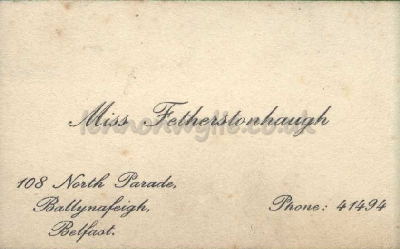 Miss Fetherstonhaugh
lennonwylie.co.uk
108 North Parade,
Ballynafeigh,
Belfast.
Phone: 41494